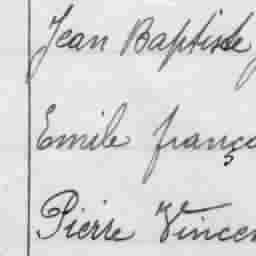 Jean Baptiste
Emile franço
Pierre Vincen